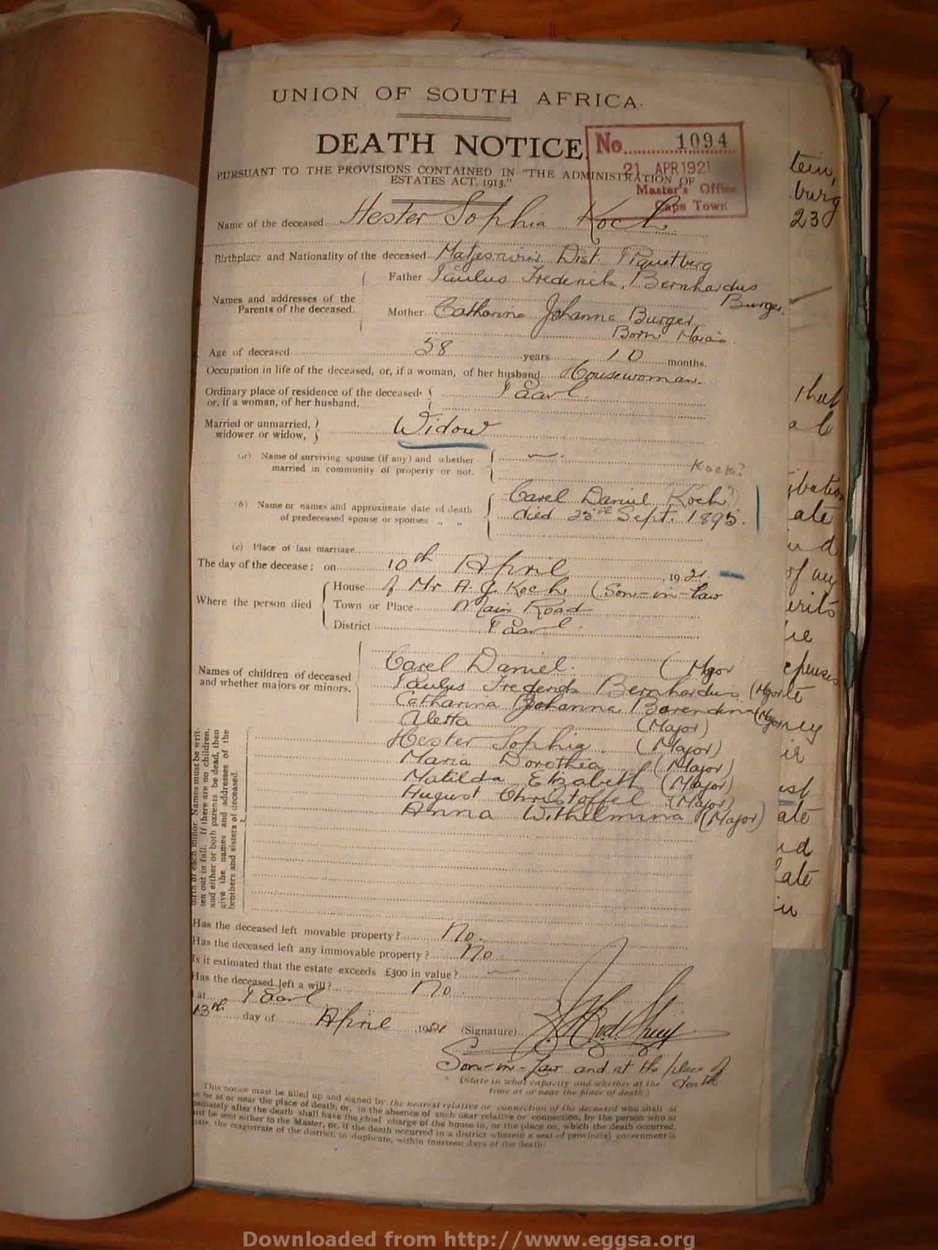 UNION OF SOUTH AFRICA.
DEATH NOTICE
No. 1094
21 APR 1921
Master's Office
Cape Town
PURSUANT TO THE PROVISIONS CONTAINED IN "THE ADMINISTRATION OF
ESTATES ACT, 1913."
Name of the deceased Hester Sophia Koch
Birthplace and Nationality of the deceased Matjesrivier Dist. Piquetberg
Names and addresses of the
Parents of the deceased.
Father Paulus Frederick Bernhardus
Burger
Mother Catharina Johanna Burger
Born Marais
Age of deceased 58 years 10 months.
Occupation in life of the deceased, or, if a woman, of her husband Housewoman.
Ordinary place of residence of the deceased-
or, if a woman, of her husband.
Paarl
Married or unmarried,
widower or widow,
Widow
(a) Name of surviving spouse (if any) and whether
married in community of property or not.
Kock?
(b) Name or names and approximate date of death
of predeceased spouse or spouses
Carel Daniel Koch
died 25th Sept. 1895.
(c) Place of last marriage
The day of the decease: on 10th April, 1921
Where the person died
House of Mr A. J. Koch (Son-in-law
Town or Place Main Road
District Paarl
Names of children of deceased
and whether majors or minors.
Carel Daniel (Major
Paulus Frederick Bernhardus (Major
Catharina Johanna Barendina (Major
Aletta (Major)
Hester Sophia (Major)
Maria Dorothea (Major)
Matilda Elizabeth (Major)
August Christoffel (Major)
Anna Wilhelmina (Major)
birth of each minor. Names must be writ-
ten out in full. If there are no children,
and either or both parents be dead, then
give the names and addresses of the
brothers and sisters of deceased.
Has the deceased left movable property? No.
Has the deceased left any immovable property? No
Is it estimated that the estate exceeds £300 in value?
Has the deceased left a will? No
at Paarl
13th day of April 1921 (Signature)
Son-in-Law and at the place of
death
(State in what capacity and whether at the
time at or near the place of death.)
This notice must be filled up and signed by the nearest relative or connection of the deceased who shall at
be at or near the place of death, or, in the absence of such near relative or connection, by the person who at
immediately after the death shall have the chief charge of the house in, or the place on, which the death occurred.
must be sent either to the Master, or, if the death occurred in a district wherein a seat of provincial government is
the magistrate of the district, in duplicate, within fourteen days of the death.
tein,
burg
230
that
ate
of my
ate
ate
Downloaded from http://www.eggsa.org